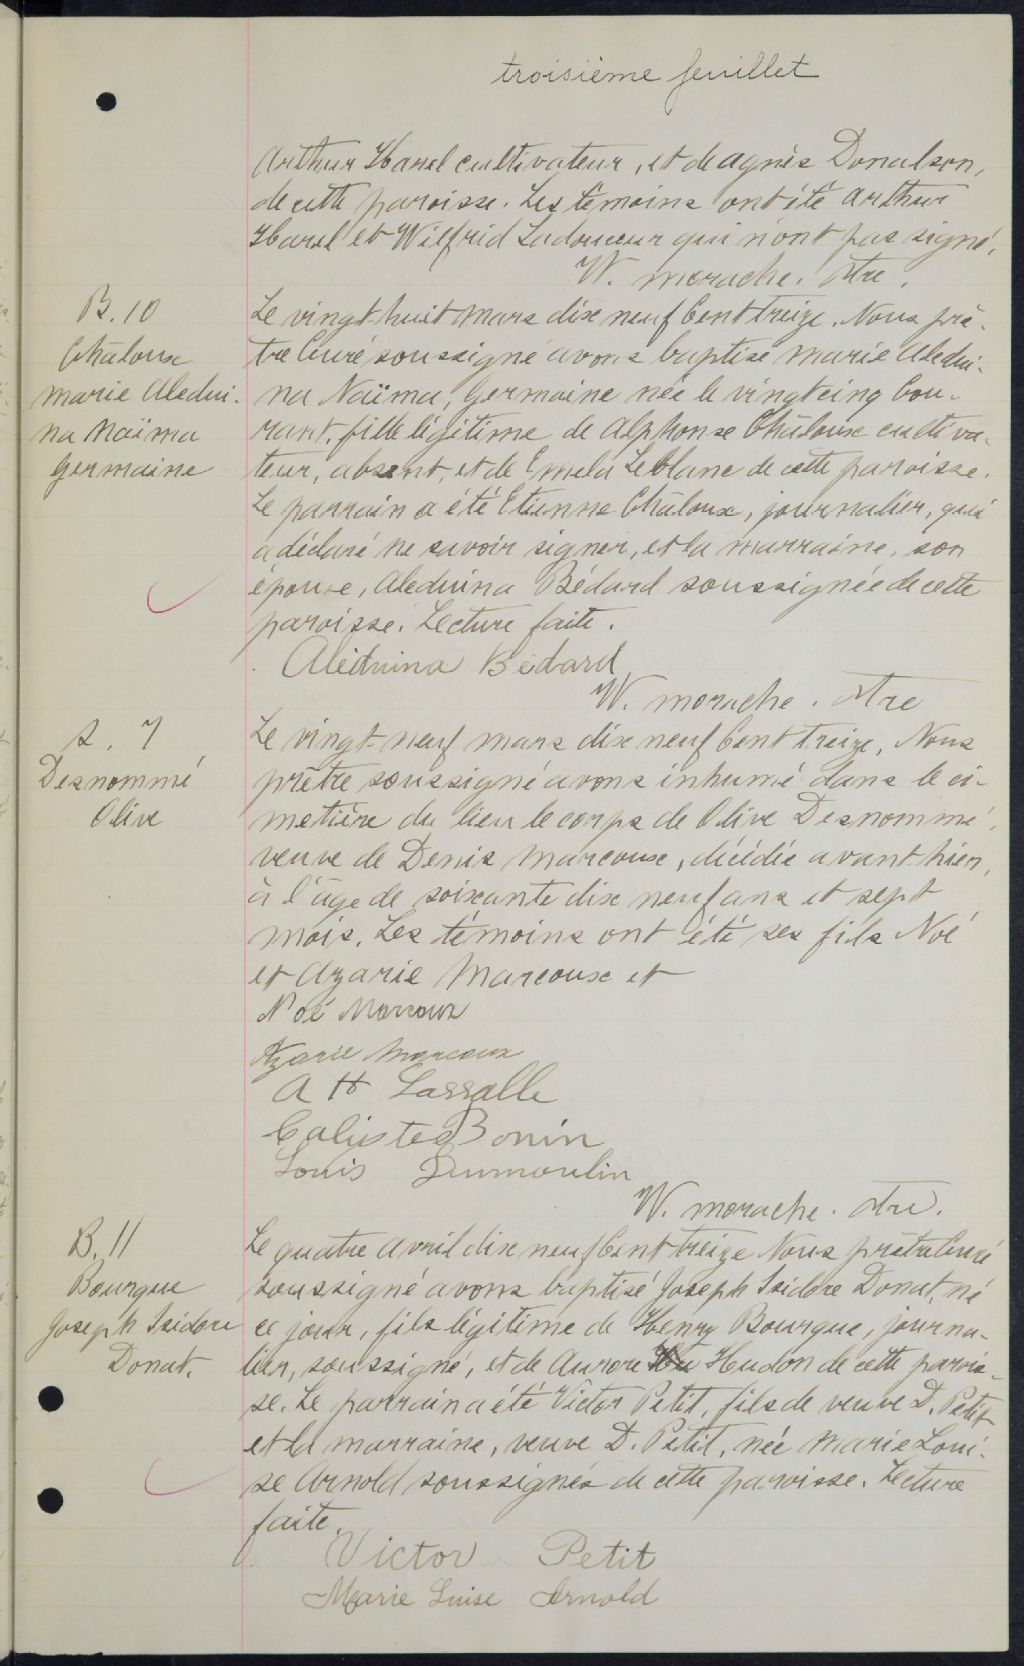 troisième feuillet
Arthur Harel cultivateur, et de Agnès Donalson,
de cette paroisse. Les témoins ont été Arthur
Harel et Wilfrid Ladouceur qui n'ont pas signé.
W. Morache. Ptre.
B. 10
Châloux
Marie Aledui-
na Naïma
Germaine
Le vingt-huit mars dix neuf Cent treize. Nous prê-
tre Curé soussigné avons baptisé Marie Aledui-
na Naïma, Germaine née le vingt cinq Cou-
rant, fille légitime de Alphonse Châloux cultiva-
teur, absent, et de Emela Leblanc de cette paroisse.
Le parrain a été Etienne Châloux, journalier, qui
a déclaré ne savoir signer, et la marraine, son
épouse, Aleduina Bédard soussignée de cette
paroisse. Lecture faite.
Aléduina Bédard
W. Morache. Ptre
S. 7
Desnommé
Olive
Le vingt-neuf mars dix neuf Cent treize, Nous
prêtre soussigné avons inhumé dans le ci-
metière du lieu le corps de Olive Desnommé,
veuve de Denis Marcoux, décédée avant hier,
à l'âge de soixante dix neuf ans et sept
mois. Les témoins ont été ses fils Noé
et Azarie Marcoux et
Noé Marcoux
Azarie Marcoux
A H Lassalle
Calixte Bonin
Louis Dumoulin
W. Morache. Ptre.
B. 11
Bourque
Joseph Isidore
Donat.
Le quatre Avril dix neuf Cent treize Nous prêtre Curé
soussigné avons baptisé Joseph Isidore Donat, né
ce jour, fils légitime de Henry Bourque, journa-
lier, soussigné, et de Aurore Hu Hudon de cette parois-
se. Le parrain a été Victor Petit, fils de veuve D. Petit
et la marraine, veuve D. Petit, née Marie Loui-
se Arnold soussignés de cette paroisse. Lecture
faite.
Victor Petit
Marie Luise Arnold